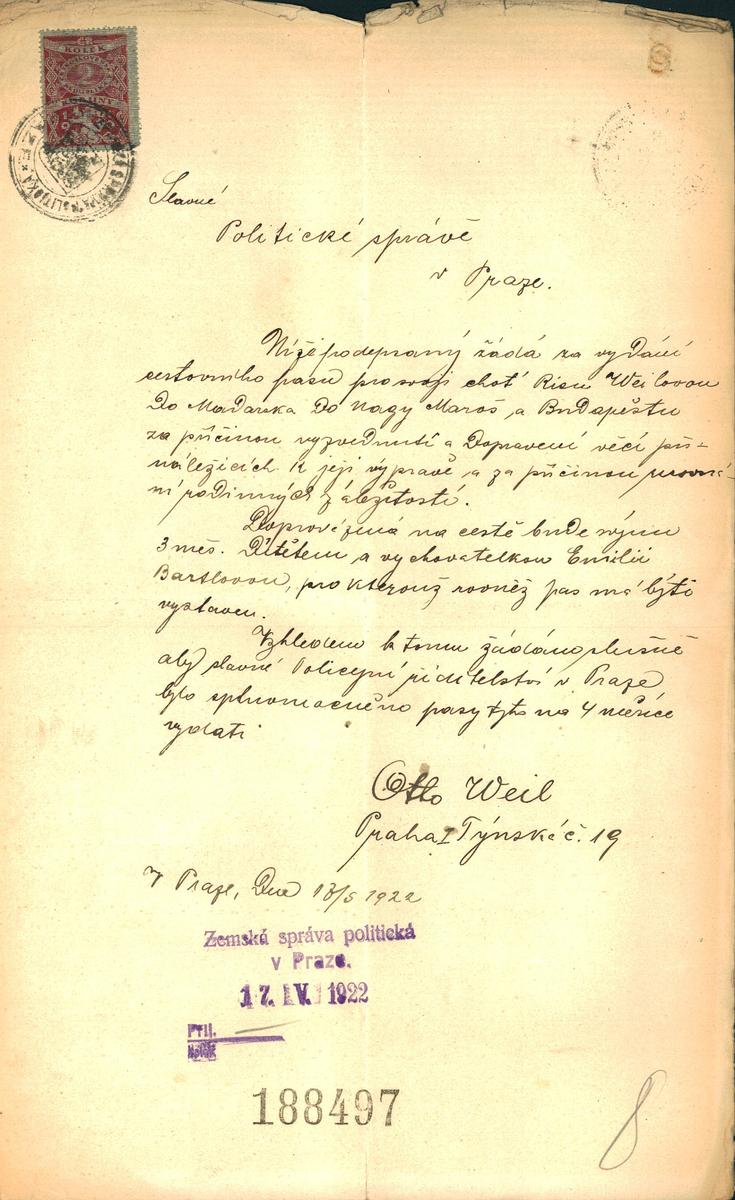 KOLEK
2
KORUNY
Slavné
Politické správě
v Praze.
Nížepodepsaný žádá za vydání
cestovního pasu pro svoji choť Risu Weilovou
do Maďarska do Nagy Maroš, a Budapěštu
za příčinou vyzvednutí a dopravení věcí při-
náležících k její výpravě, a za příčinou urovná-
ní rodinných záležitostí.
Doprovázená na cestě bude svým
3 měs. dítětem a vychovatelkou Emilií
Bartlovou, pro kterouž rovněž pas má býti
vystaven.
Vzhledem k tomu žádáno slušně
aby slavné Policejní ředitelství v Praze
bylo splnomocněno pasy tyto na 4 měsíce
vydati
Otto Weil
Praha I Týnská č. 19
V Praze, dne 13/5 1922
Zemská správa politická
v Praze.
17. V. 1922
Příl.
Kolek
188497
8